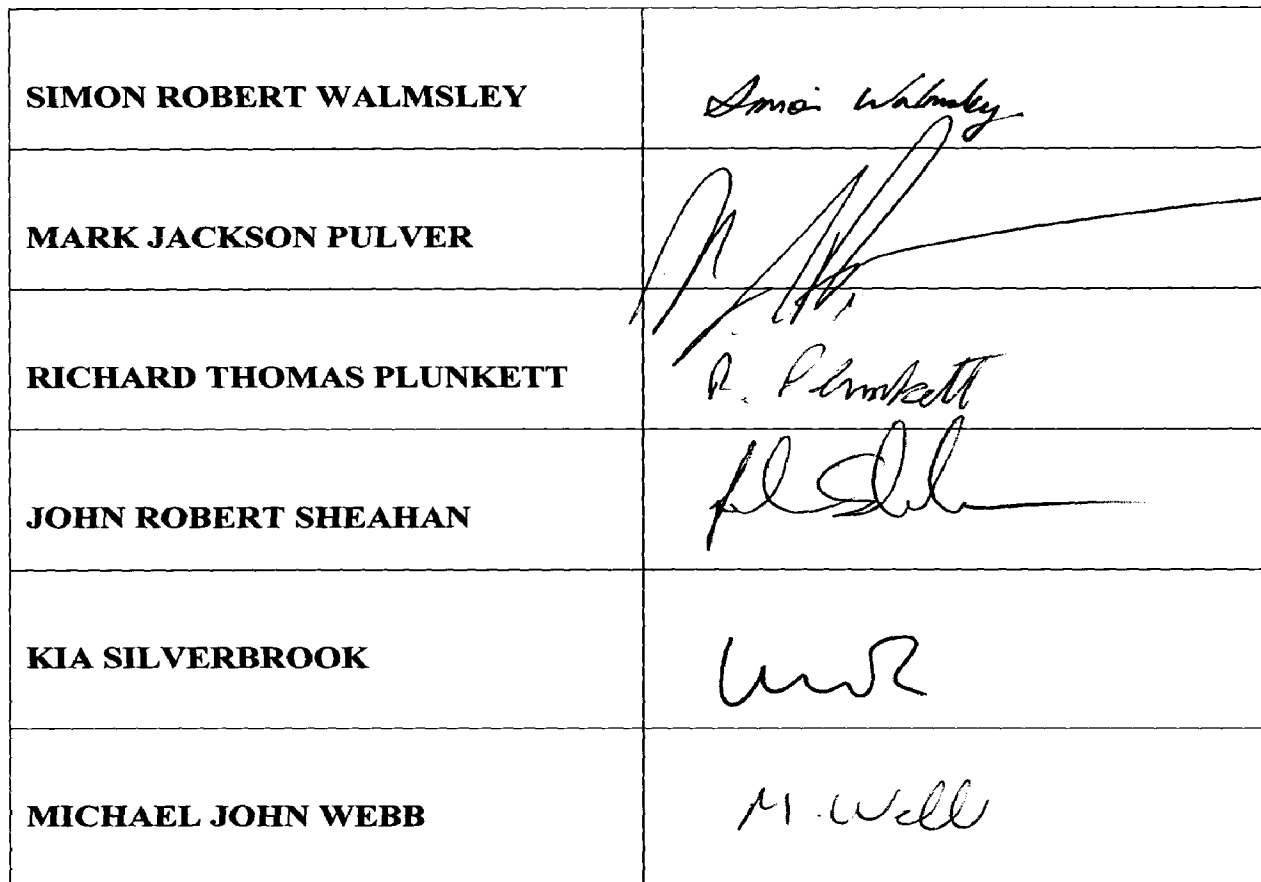 SIMON ROBERT WALMSLEY Simon Walmsley
MARK JACKSON PULVER
RICHARD THOMAS PLUNKETT R. Plunkett
JOHN ROBERT SHEAHAN
KIA SILVERBROOK
MICHAEL JOHN WEBB M. Webb